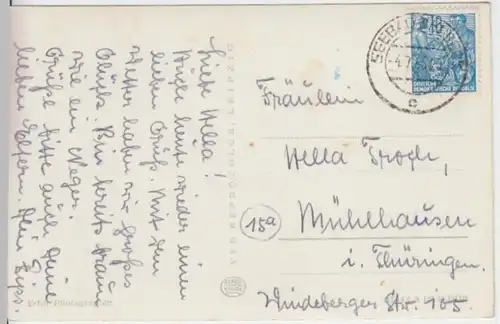 Liebe Hella!
Auch heute wieder einen
lieben Gruß. Mit dem
Wetter haben wir großes
Glück. Bin bereits braun
wie ein Neger.
Grüße bitte auch Deine
lieben Eltern. Dein
SEEBAD
-4.7.
c
DEUTSCHE
DEMOKRATISCHE REPUBLIK
Fräulein
Hella
15a
Mühlhausen
i. Thüringen.
Windeberger Str. 105.